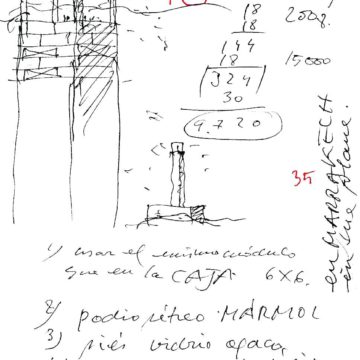 18
18
144
18
324
30
9.720
2008.
15000
35
en MARRAKECH
en une place.
1) usar el mismo módulo
que en la CAJA 6x6.
2) podio pétreo. MÁRMOL
3) piés vidrio opaco